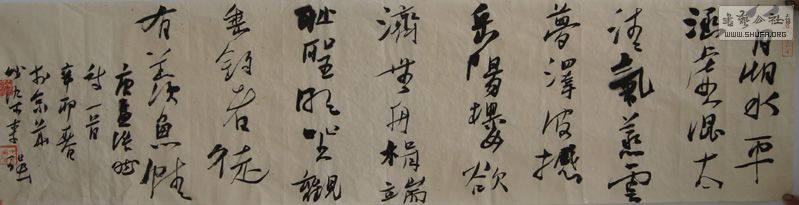 月湖水平
涵虛混太
清氣蒸雲
夢澤波撼
岳陽樓欲
濟無舟楫端
耻聖明坐觀
垂釣者徒
有羨魚情
唐孟浩然
詩一首
辛卯春
於京華
書藝公社
WWW.SHUFA.ORG